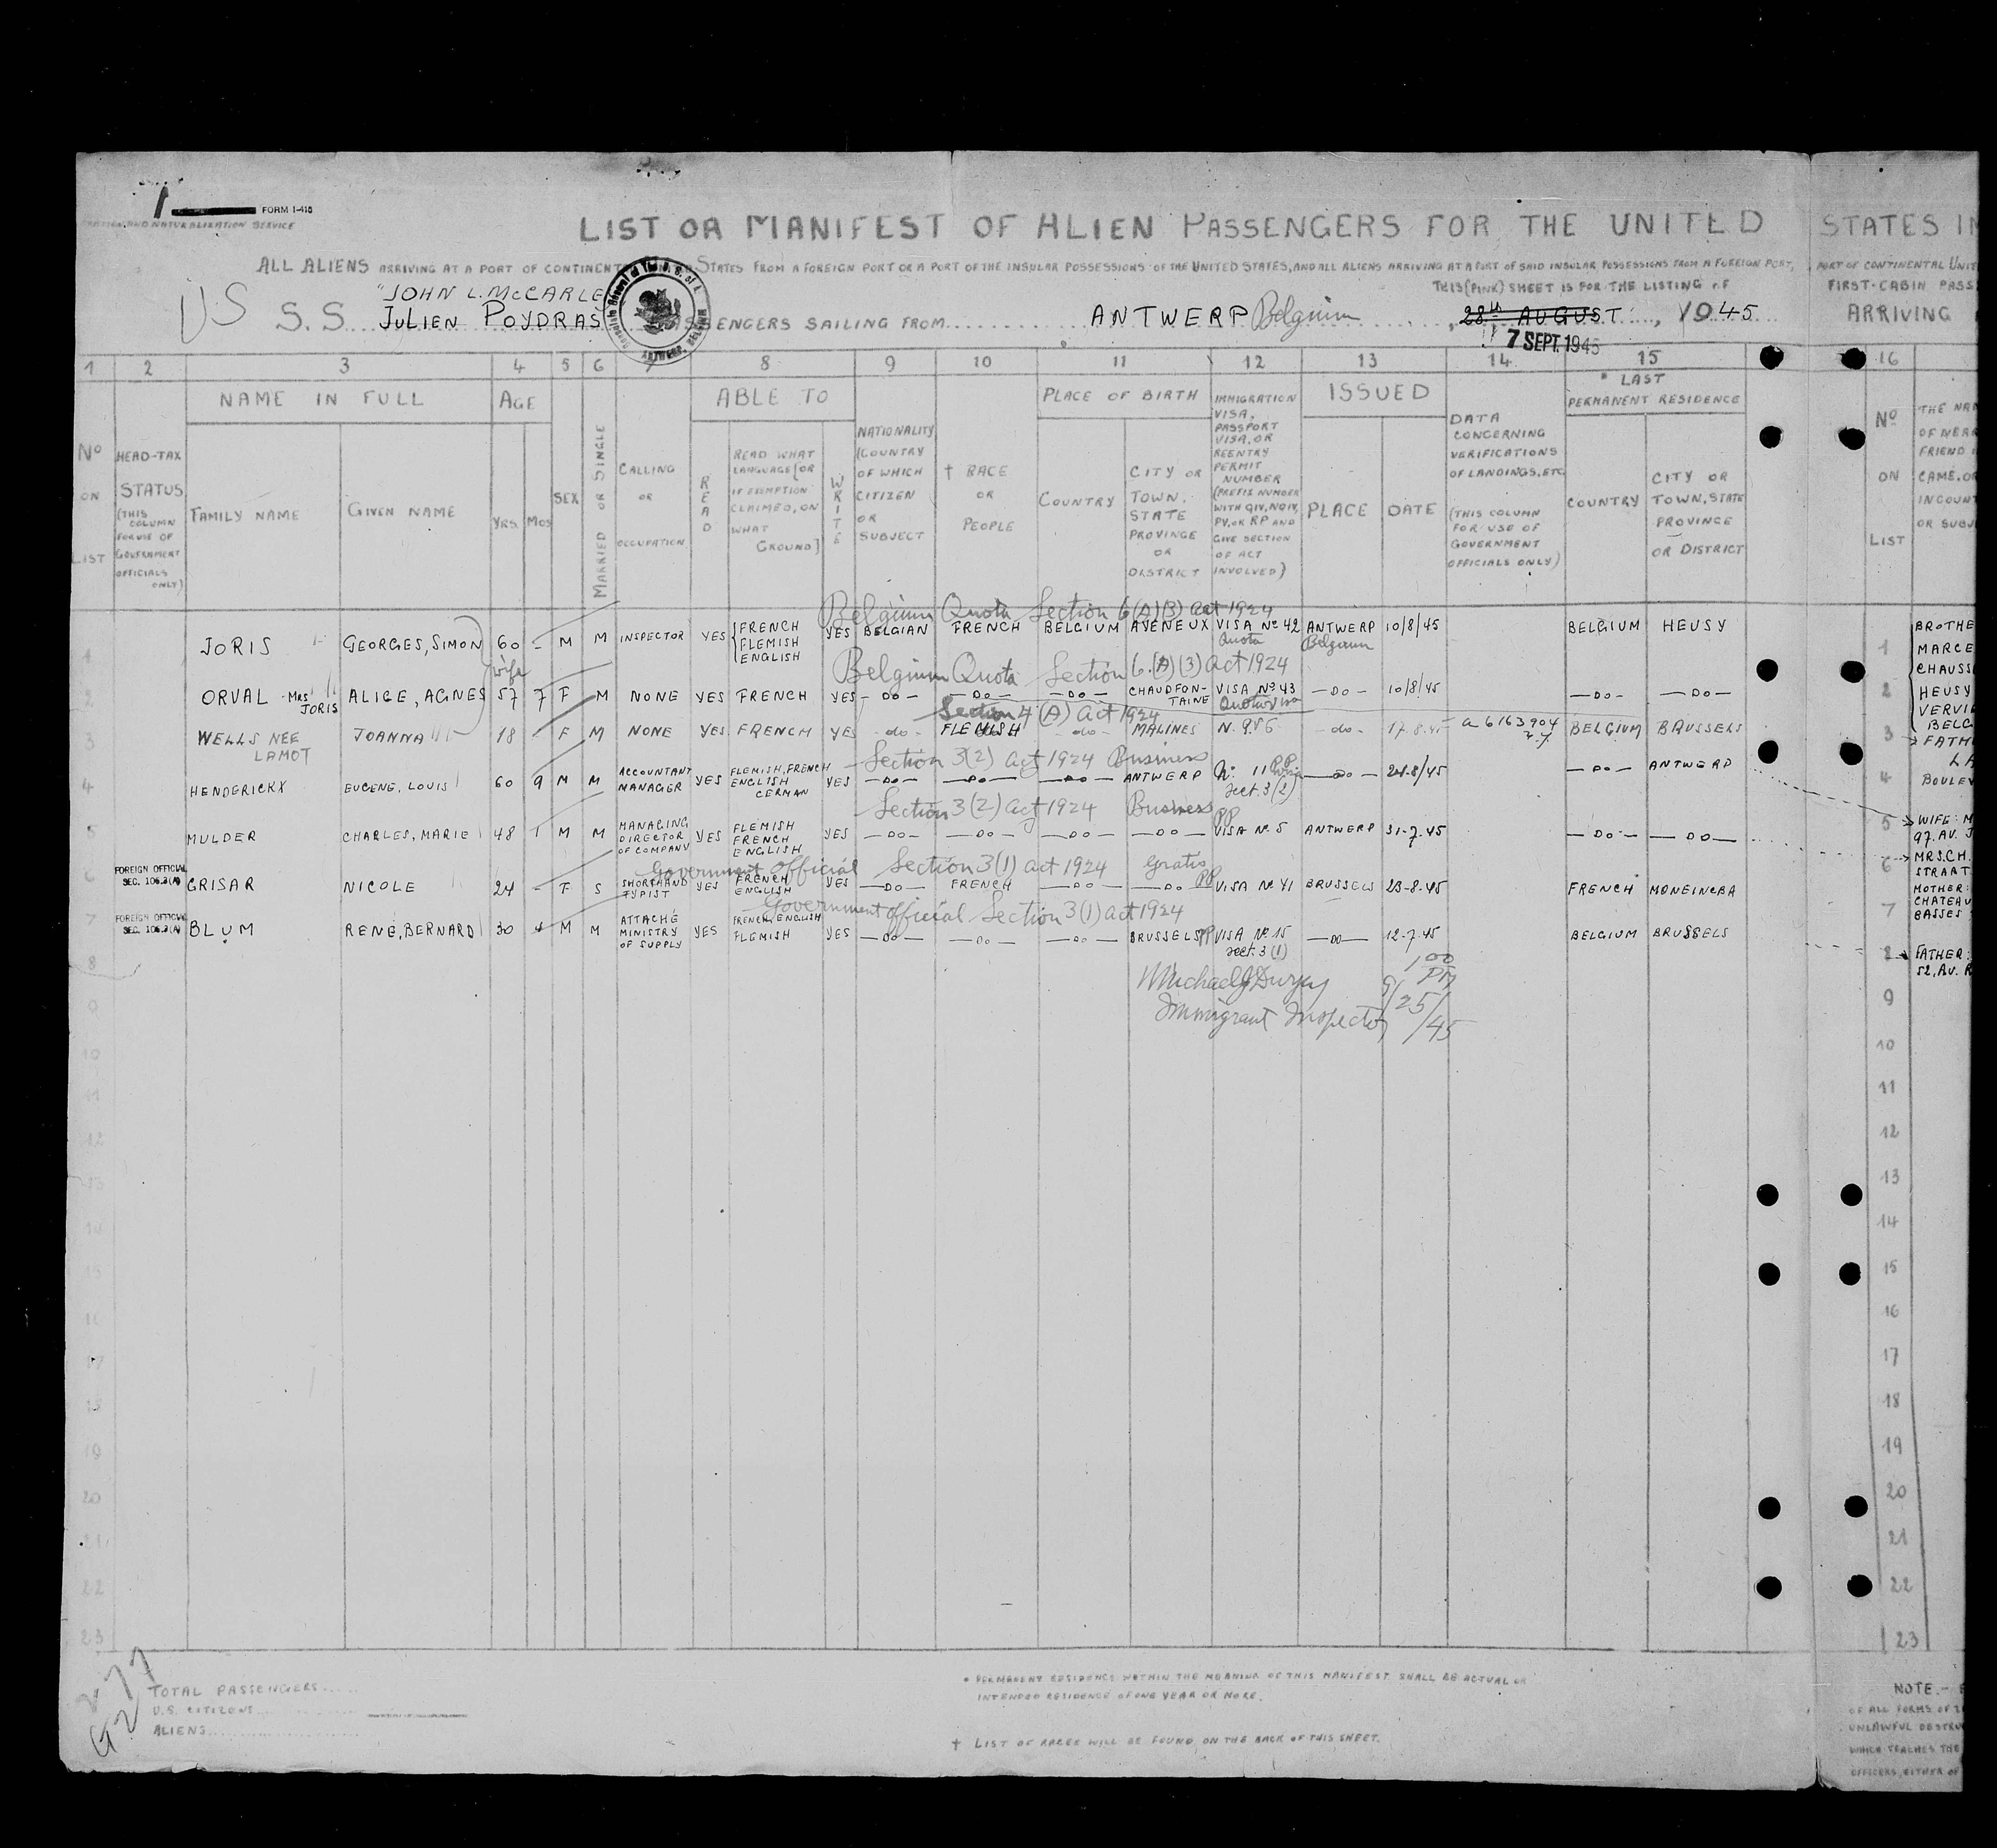 1 FORM I-415
AND NATURALIZATION SERVICE
LIST OR MANIFEST OF ALIEN PASSENGERS FOR THE UNITED STATES IN
ALL ALIENS ARRIVING AT A PORT OF CONTINENT STATES FROM A FOREIGN PORT OR A PORT OF THE INSULAR POSSESSIONS OF THE UNITED STATES, AND ALL ALIENS ARRIVING AT A PORT OF SAID INSULAR POSSESSIONS FROM A FOREIGN PORT,
PORT OF CONTINENTAL UNIT
THIS (PINK) SHEET IS FOR THE LISTING OF
FIRST-CABIN PASS
US S.S. "JOHN L. McCARLE
JULIEN POYDRAS PASSENGERS SAILING FROM ANTWERP Belgium, 28th AUGUST, 1945
7 SEPT. 1945
ARRIVING
1 2 3 4 5 6 7 8 9 10 11 12 13 14 15 16
No ON LIST
HEAD-TAX STATUS (THIS COLUMN FOR USE OF GOVERNMENT OFFICIALS ONLY)
NAME IN FULL
FAMILY NAME
GIVEN NAME
AGE
YRS. MOS
SEX
MARRIED OR SINGLE
CALLING OR OCCUPATION
ABLE TO
READ
READ WHAT LANGUAGE [OR IF EXEMPTION CLAIMED, ON WHAT GROUND]
WRITE
NATIONALITY (COUNTRY OF WHICH CITIZEN OR SUBJECT
† RACE OR PEOPLE
PLACE OF BIRTH
COUNTRY
CITY OR TOWN, STATE PROVINCE OR DISTRICT
IMMIGRATION VISA, PASSPORT VISA, OR REENTRY PERMIT NUMBER (PREFIX NUMBER WITH QIV, NQIV, PV, OR RP AND GIVE SECTION OF ACT INVOLVED)
ISSUED
PLACE
DATE
DATA CONCERNING VERIFICATIONS OF LANDINGS, ETC (THIS COLUMN FOR USE OF GOVERNMENT OFFICIALS ONLY)
* LAST PERMANENT RESIDENCE
COUNTRY
CITY OR TOWN, STATE PROVINCE OR DISTRICT
No ON LIST
Belgium Quota Section 6(A)(3) act 1924
1 JORIS GEORGES, SIMON 60 - M M INSPECTOR YES FRENCH FLEMISH ENGLISH YES BELGIAN FRENCH BELGIUM AYENEUX VISA No 42 Quota ANTWERP Belgium 10/8/45 BELGIUM HEUSY
wife
Belgium Quota Section 6.(A)(3) act 1924
2 ORVAL MRS JORIS ALICE, AGNES 57 7 F M NONE YES FRENCH YES - DO - - DO - - DO - CHAUDFONTAINE VISA No 43 Quota visa - DO - 10/8/45 - DO - - DO -
Section 4 (A) act 1924
3 WELLS NEE LAMOT JOANNA 18 - F M NONE YES FRENCH YES - do - FLEMISH - do - MALINES N. 986 - do - 17.8.45 a 6163904 BELGIUM BRUSSELS
Section 3(2) act 1924 Business
4 HENDERICKX EUGENE, LOUIS 60 9 M M ACCOUNTANT MANAGER YES FLEMISH, FRENCH ENGLISH GERMAN YES - DO - - DO - - DO - ANTWERP No 11 PP visa sect. 3(2) - DO - 24.8/45 - DO - ANTWERP
Section 3(2) act 1924 Business
5 MULDER CHARLES, MARIE 48 1 M M MANAGING DIRECTOR OF COMPANY YES FLEMISH FRENCH ENGLISH YES - DO - - DO - - DO - - DO - PP VISA No 5 ANTWERP 31-7-45 - DO - - DO -
Government Official Section 3(1) act 1924 gratis
FOREIGN OFFICIAL SEC. 105.3(A)
6 GRISAR NICOLE 24 - F S SHORTHAND TYPIST YES FRENCH ENGLISH YES - DO - FRENCH - DO - - DO - PP VISA No 41 BRUSSELS 23-8-45 FRENCH
Government official Section 3(1) act 1924
FOREIGN OFFICIAL SEC. 105.3(A)
7 BLUM RENE, BERNARD 30 M M ATTACHÉ MINISTRY OF SUPPLY YES FRENCH, ENGLISH FLEMISH YES - DO - - DO - - DO - BRUSSELS PP VISA No 15 sect. 3(1) - DO - 12-7-45 BELGIUM BRUSSELS
1 00 PM
Immigrant Inspector 9/25/45
BROTHE
MARCE
CHAUSS
HEUSY
VERVIE
BELG
FATH
LA
BOULEV
WIFE: M
97. AV. J
MRS.CH.
STRAAT
MOTHER:
CHATEAU
BASSES
FATHER:
52, AV. R
8
9
10
11
12
13
14
15
16
17
18
19
20
21
22
23
TOTAL PASSENGERS
U.S. CITIZENS
ALIENS
* PERMANENT RESIDENCE WITHIN THE MEANING OF THIS MANIFEST SHALL BE ACTUAL OR
INTENDED RESIDENCE OF ONE YEAR OR MORE.
† LIST OF RACES WILL BE FOUND ON THE BACK OF THIS SHEET.
NOTE.-
OF ALL FORMS OF
UNLAWFUL DESTRU
WHICH TEACHES THE
OFFICERS, EITHER OF